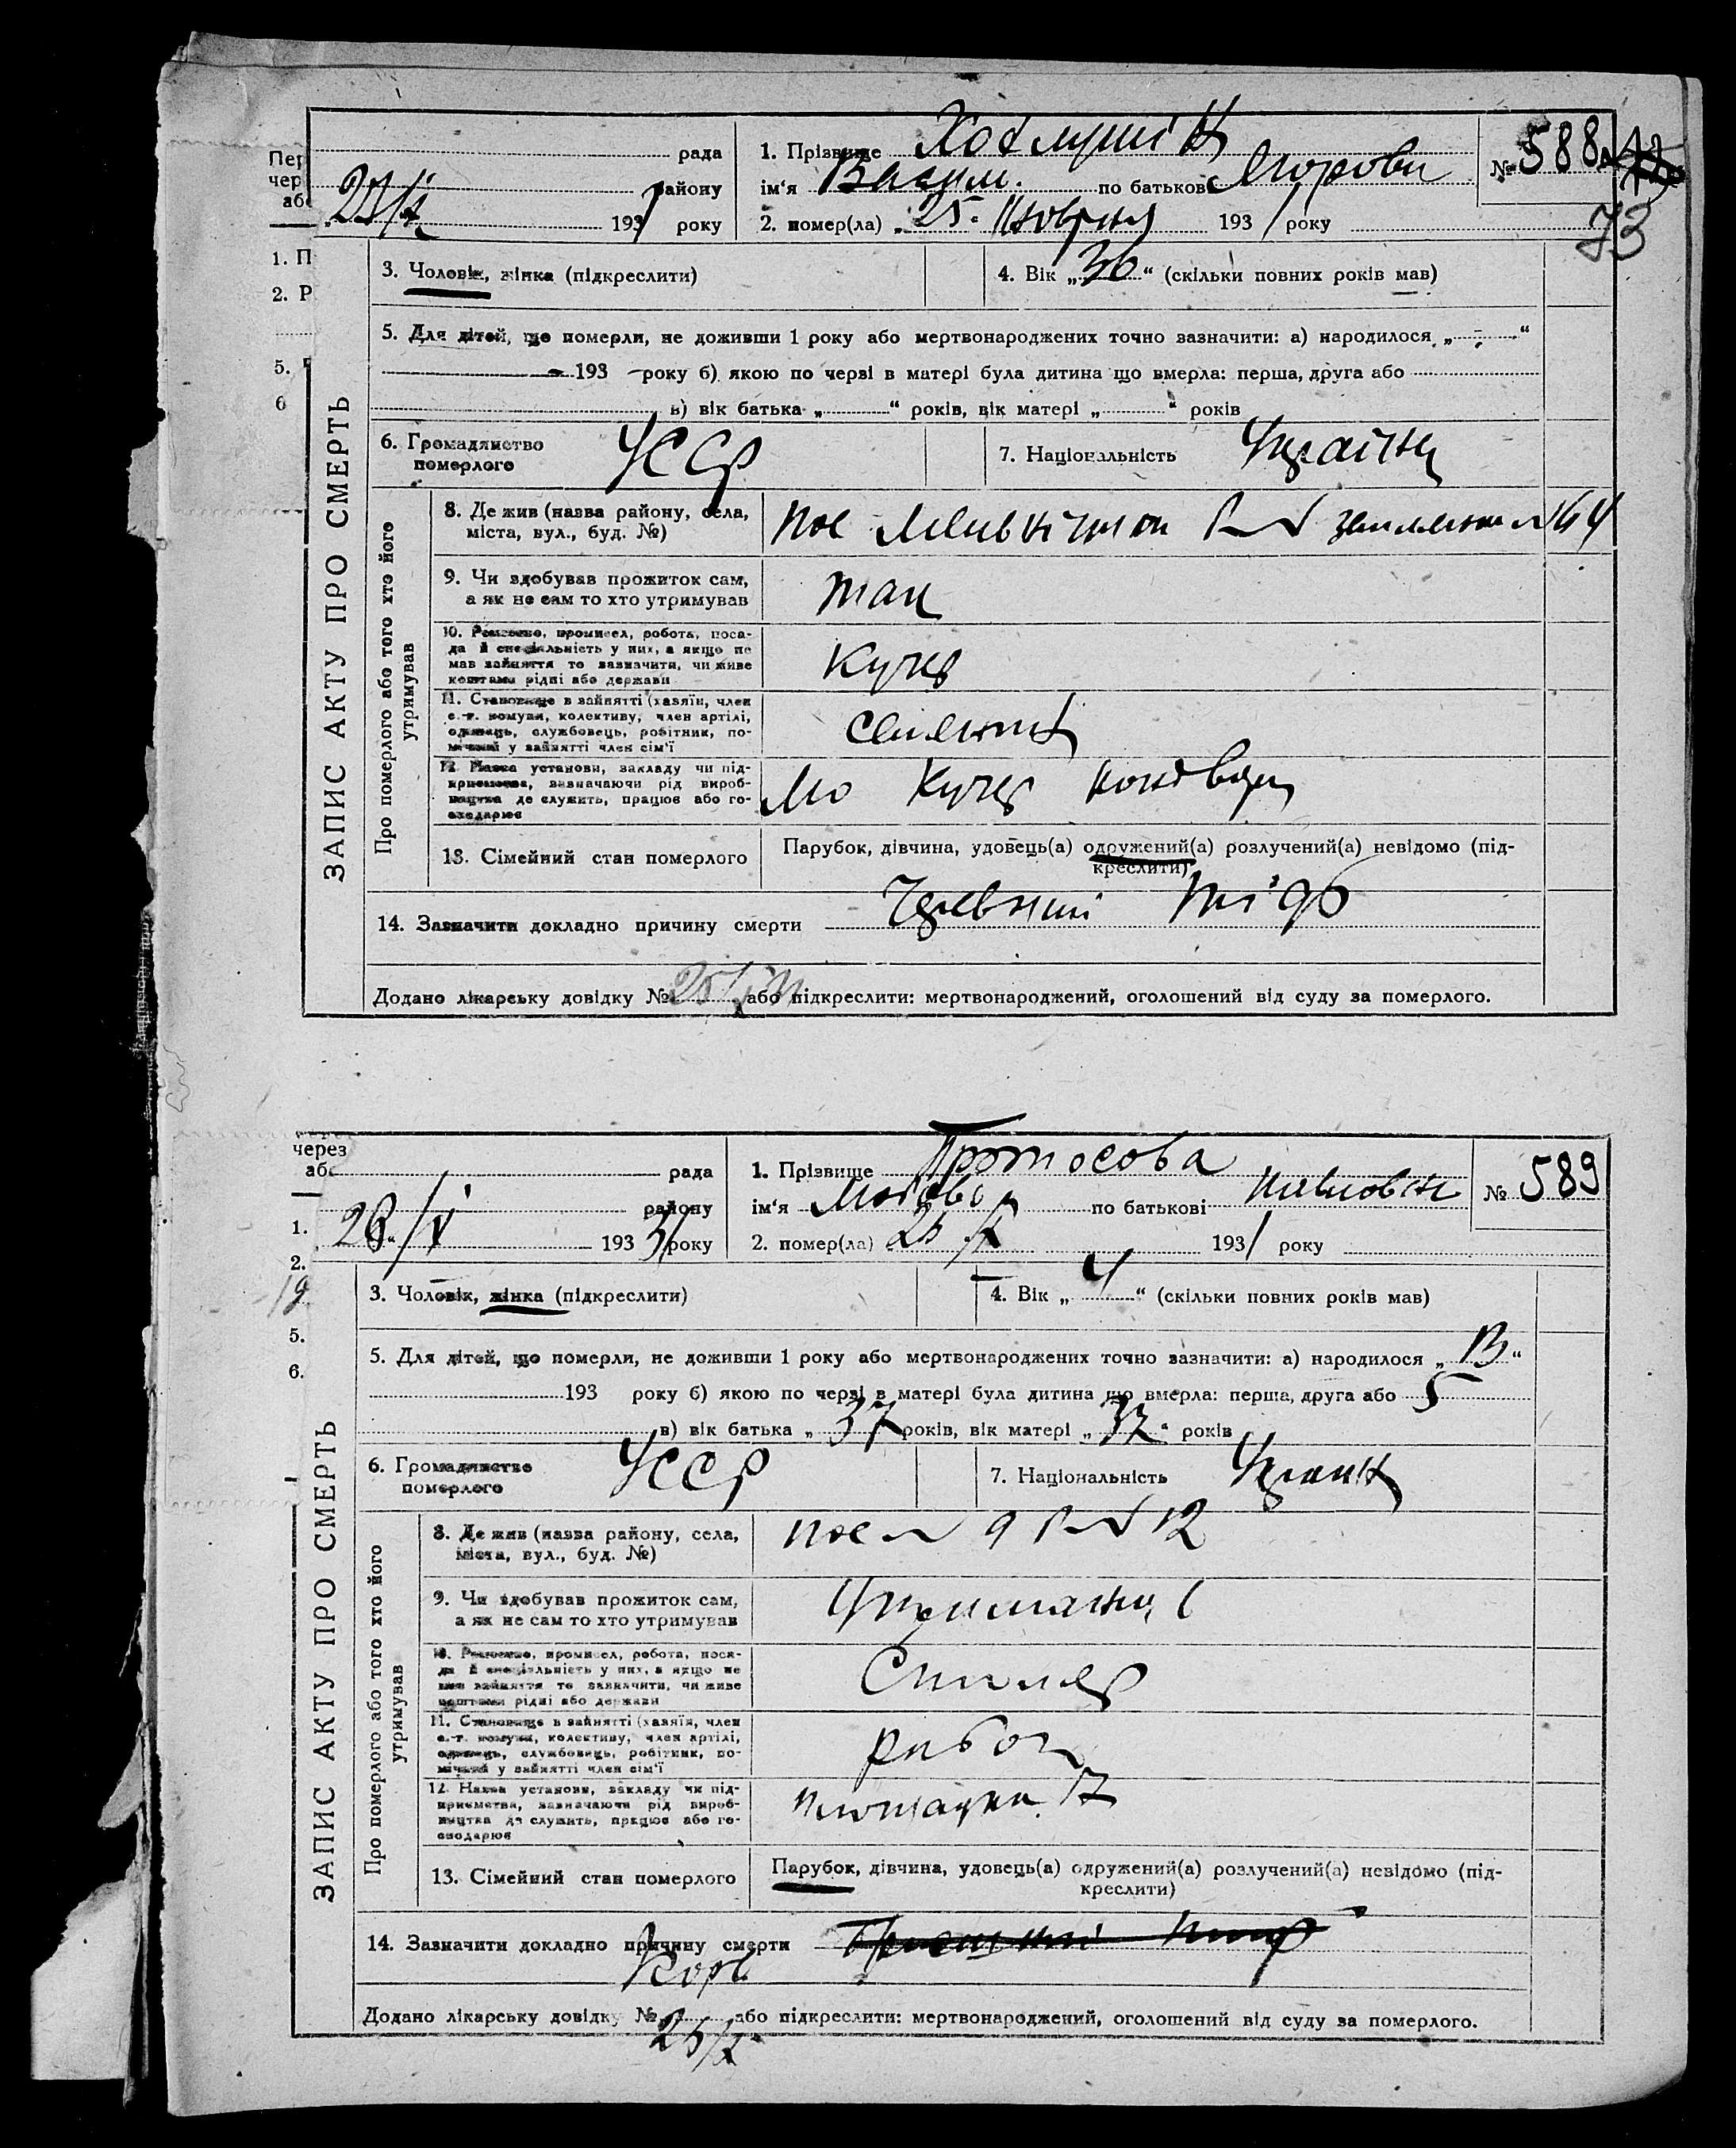 Пер
чер
або
рада
району
193 1 року
1. Прізвище
ім'я Васил. по батькові Егорови
2. помер(ла) „25" 1931 року
№ 588
73
1. П
2. Р
5.
6
ЗАПИС АКТУ ПРО СМЕРТЬ
3. Чоловік, жінка (підкреслити)
4. Вік „36" (скільки повних років мав)
5. Для дітей, що померли, не доживши 1 року або мертвонароджених точно зазначити: а) народилося „ "
193 року б) якою по черзі в матері була дитина що вмерла: перша, друга або
в) вік батька „ " років, вік матері „ " років
6. Громадянство
померлого
УССР
7. Національність
Україн
Про померлого або того хто його
утримував
8. Де жив (назва району, села,
міста, вул., буд. №)
пос
9. Чи здобував прожиток сам,
а як не сам то хто утримував
так
10. Ремесло, промисел, робота, поса-
да й спеціяльність у них, а якщо не
мав зайняття то зазначити, чи живе
коштами рідні або держави
Кучер
11. Становище в зайнятті (хазяїн, член
с.-г. комуни, колективу, член артілі,
одинець, службовець, робітник, по-
мічний у зайнятті член сім'ї
селянин
12. Назва установи, закладу чи під-
приємства, зазначаючи рід вироб-
ництва де служить, працює або го-
сподарює
Кучер
13. Сімейний стан померлого
Парубок, дівчина, удовець(а) одружений(а) розлучений(а) невідомо (під-
креслити)
14. Зазначити докладно причину смерти
Черевний тіф
Додано лікарську довідку № або підкреслити: мертвонароджений, оголошений від суду за померлого.
через
або
рада
району
28/V 1931 року
1. Прізвище Протосова
ім'я по батькові
2. помер(ла) 1931 року
№ 589
1.
2.
19
5.
6.
ЗАПИС АКТУ ПРО СМЕРТЬ
3. Чоловік, жінка (підкреслити)
4. Вік „4" (скільки повних років мав)
5. Для дітей, що померли, не доживши 1 року або мертвонароджених точно зазначити: а) народилося „ "
193 року б) якою по черзі в матері була дитина що вмерла: перша, друга або 5
в) вік батька „37 років, вік матері „37" років
6. Громадянство
померлого
УССР
7. Національність
Про померлого або того хто його
утримував
8. Де жив (назва району, села,
міста, вул., буд. №)
пос № 9 12
9. Чи здобував прожиток сам,
а як не сам то хто утримував
10. Ремесло, промисел, робота, поса-
да й спеціяльність у них, а якщо не
мав зайняття то зазначити, чи живе
коштами рідні або держави
Столяр
11. Становище в зайнятті (хазяїн, член
с.-г. комуни, колективу, член артілі,
одинець, службовець, робітник, по-
мічний у зайнятті член сім'ї
рабоч
12. Назва установи, закладу чи під-
приємства, зазначаючи рід вироб-
ництва де служить, працює або го-
сподарює
площадка 17
13. Сімейний стан померлого
Парубок, дівчина, удовець(а) одружений(а) розлучений(а) невідомо (під-
креслити)
14. Зазначити докладно причину смерти
Корь
Додано лікарську довідку № або підкреслити: мертвонароджений, оголошений від суду за померлого.